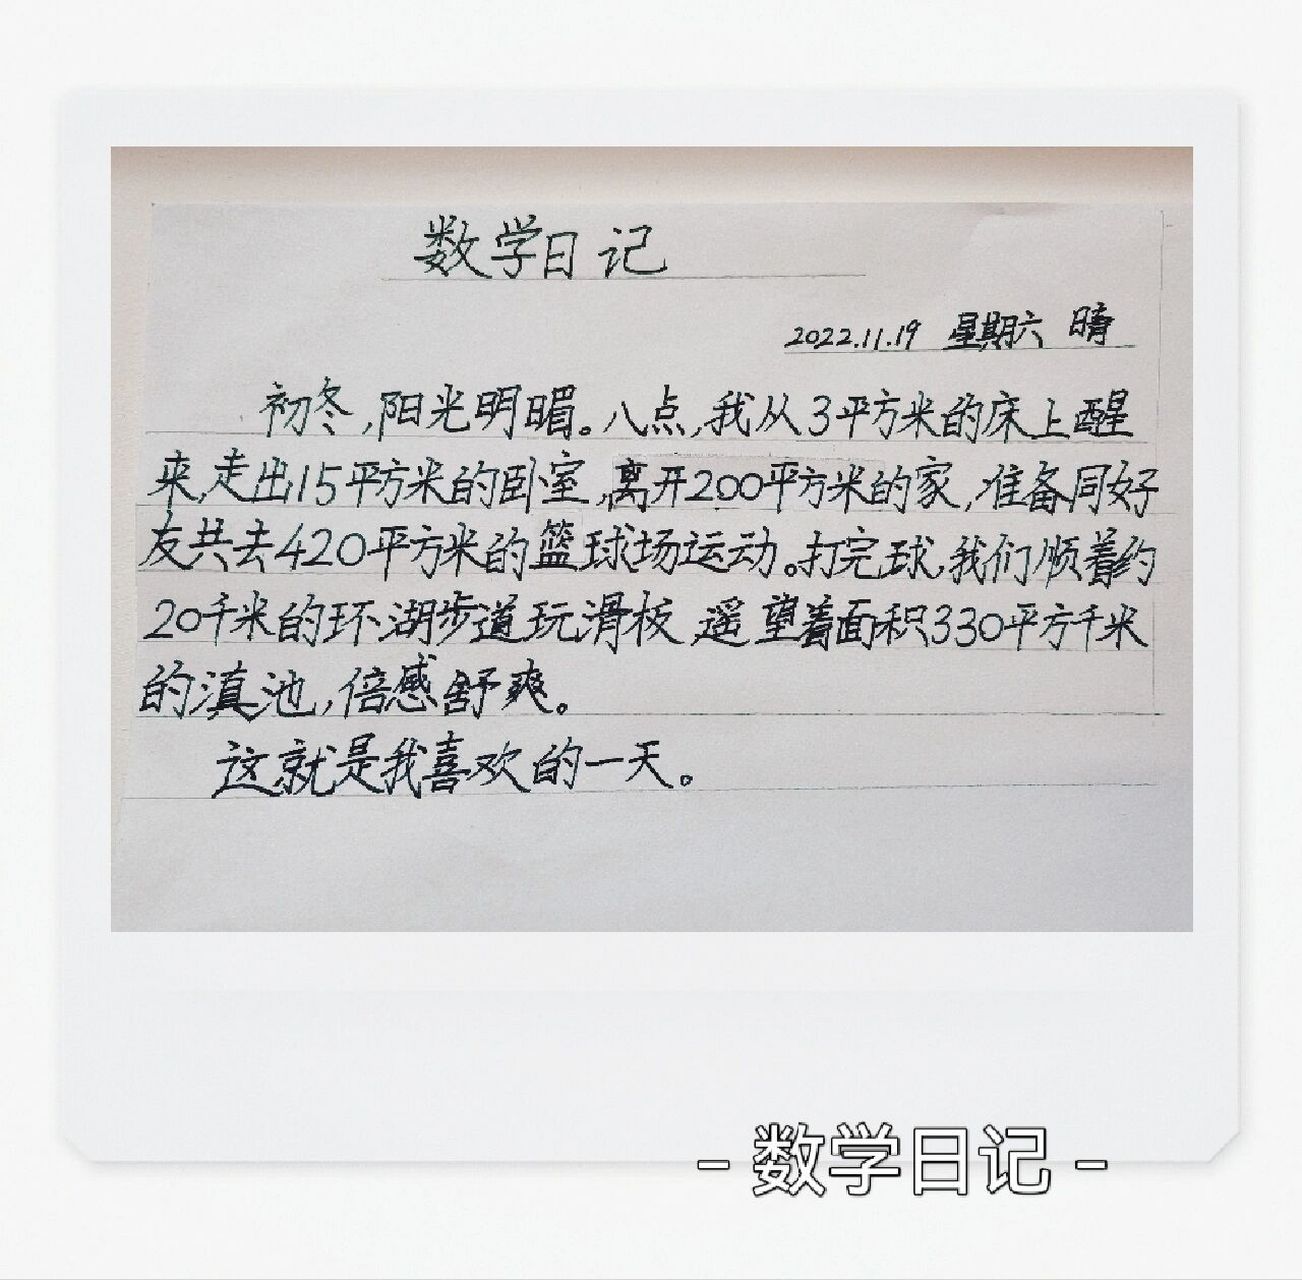 数学日记
2022.11.19 星期六 晴
初冬,阳光明媚。八点,我从3平方米的床上醒
来,走出15平方米的卧室,离开200平方米的家,准备同好
友共去420平方米的篮球场运动。打完球,我们顺着约
20千米的环湖步道玩滑板 遥望着面积330平方千米
的滇池,倍感舒爽。
这就是我喜欢的一天。
- 数学日记 -